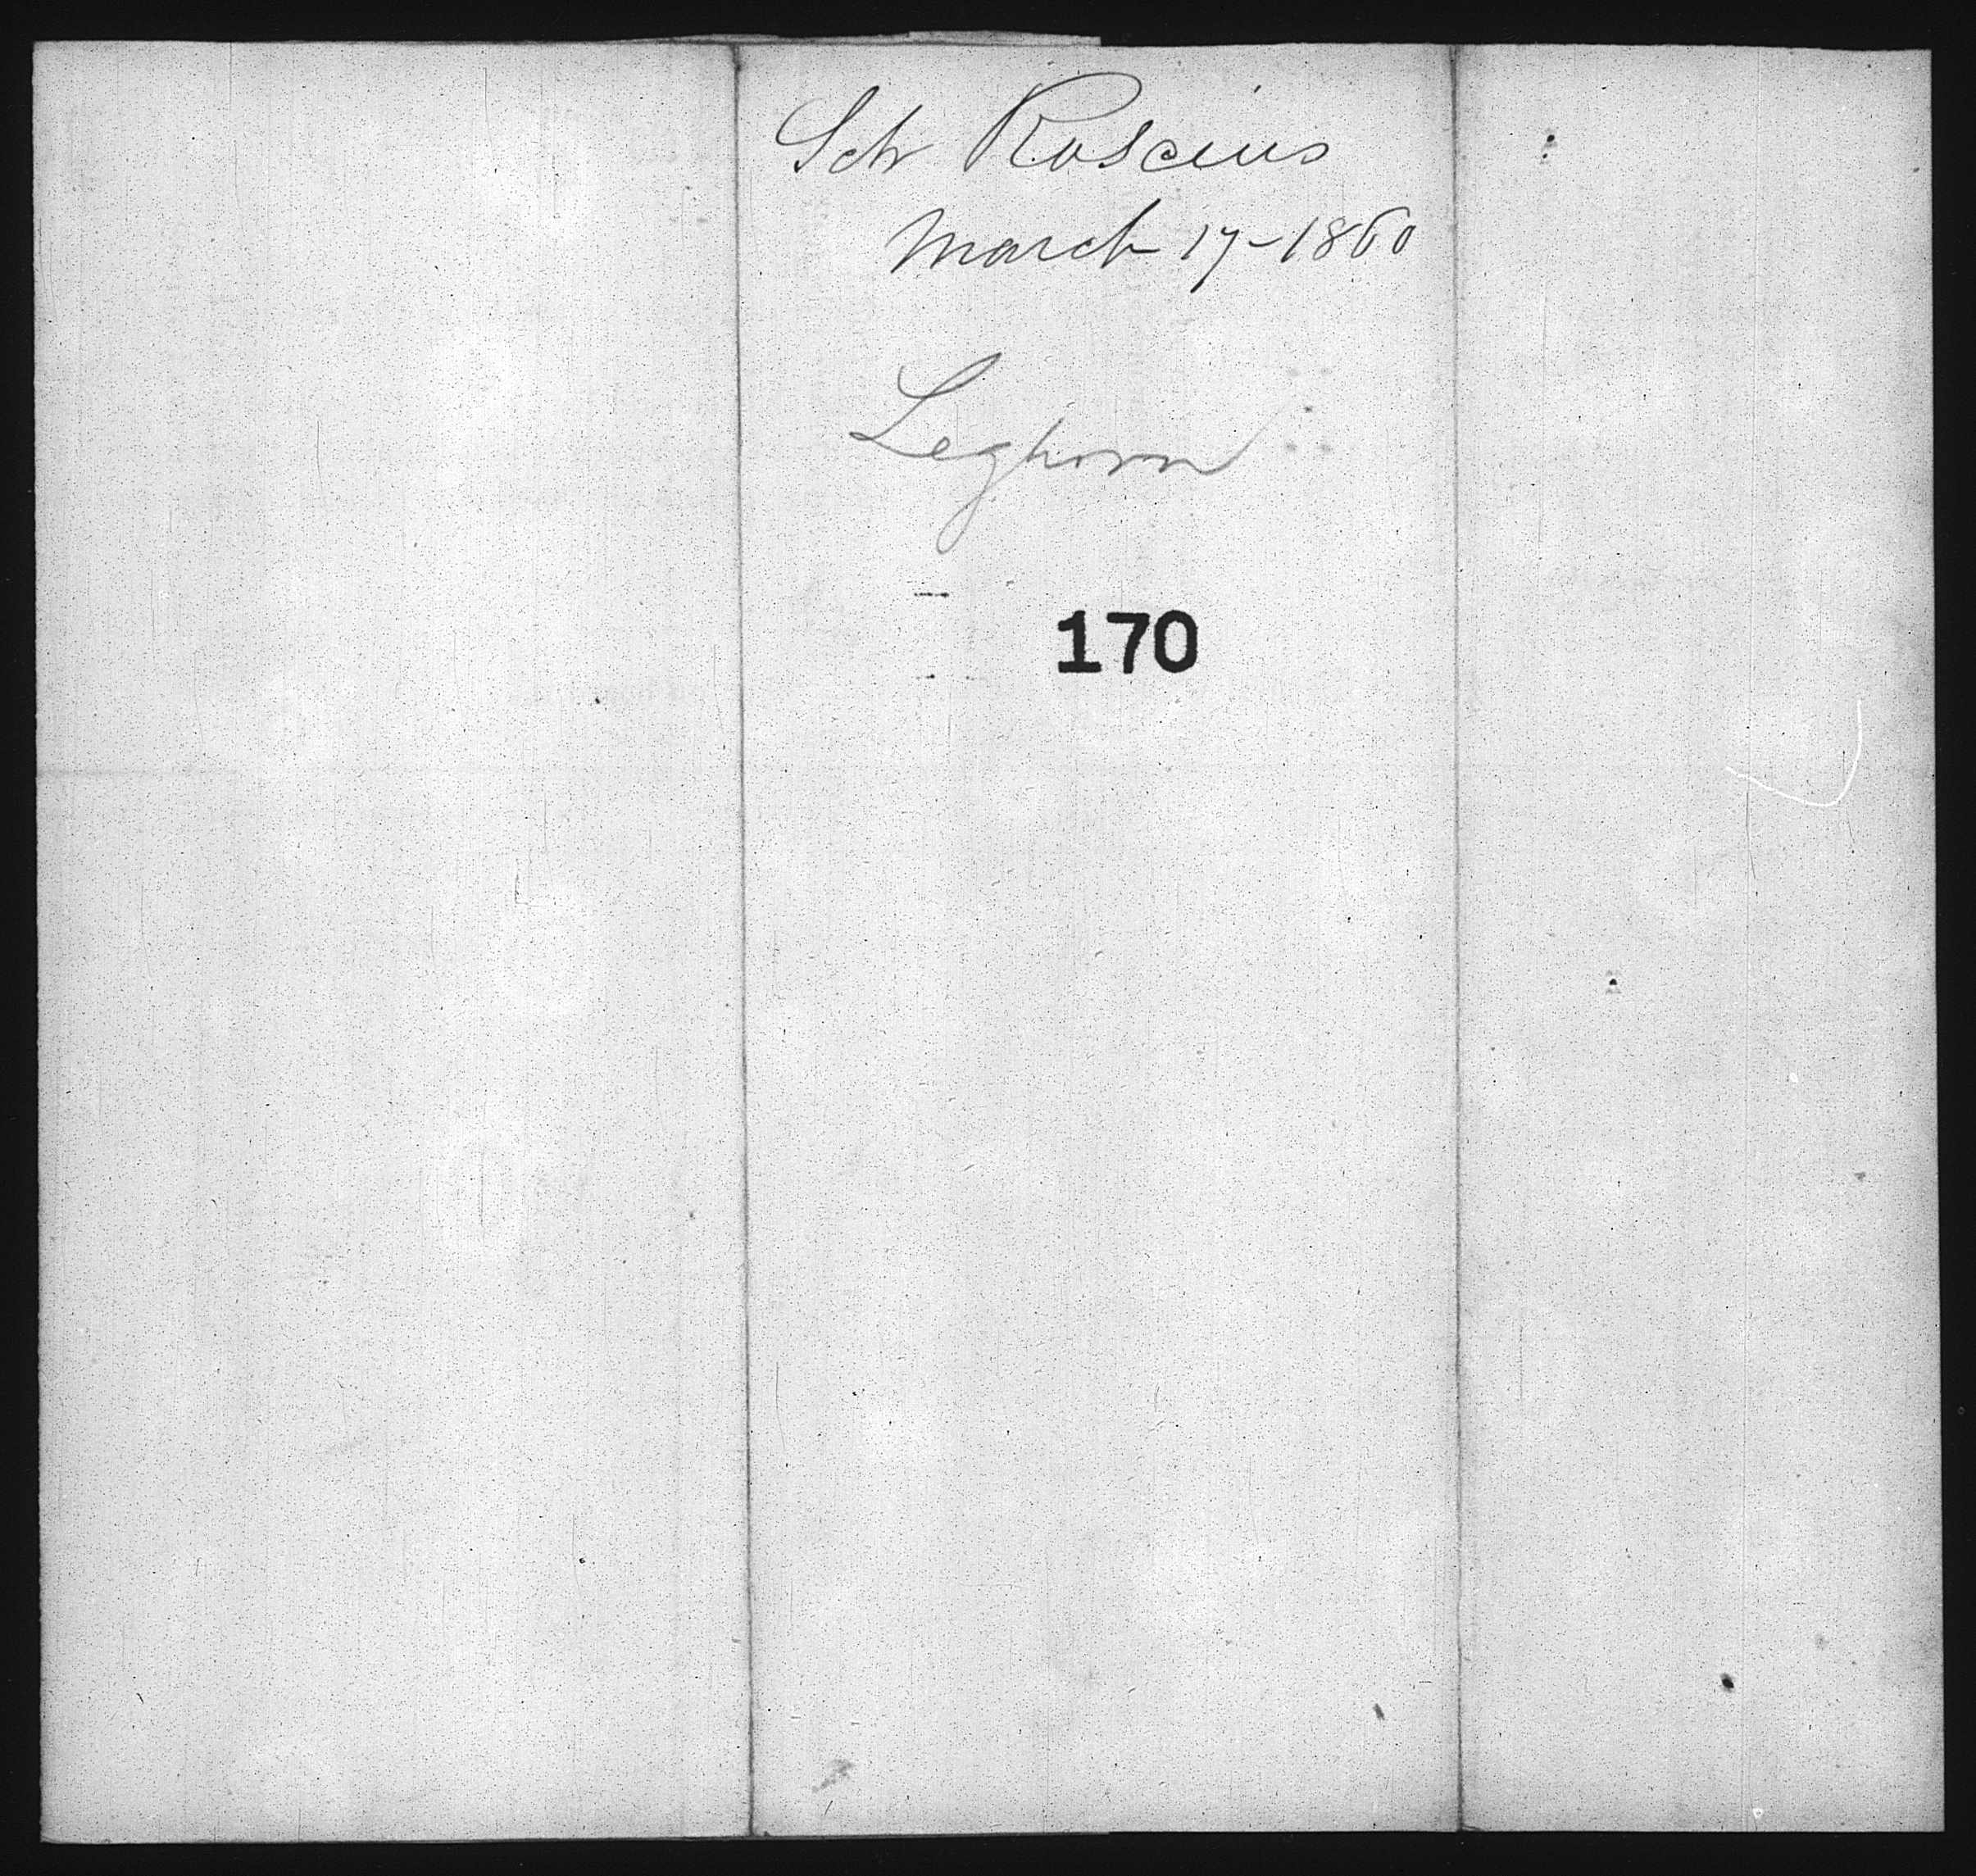 Sch Roscius
March 17-1860
Leghorn
170